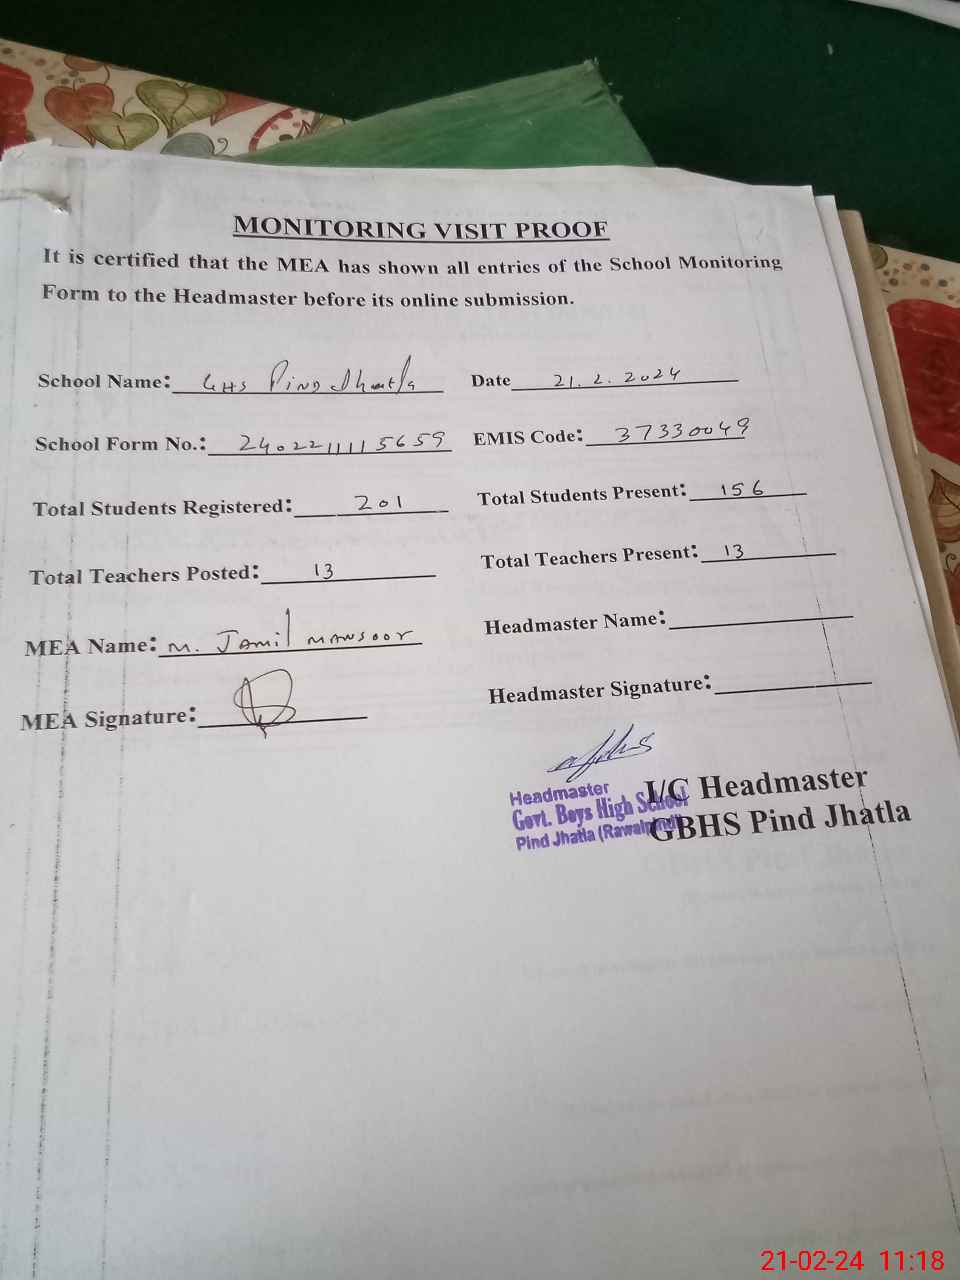 MONITORING VISIT PROOF
It is certified that the MEA has shown all entries of the School Monitoring
Form to the Headmaster before its online submission.
School Name: GHS Pind Jhatla Date 21.2.2024
School Form No.: 2402211115659 EMIS Code: 37330049
Total Students Registered: 201 Total Students Present: 156
Total Teachers Posted: 13 Total Teachers Present: 13
MEA Name: M. Jamil Mansoor Headmaster Name:
MEA Signature: Headmaster Signature:
Headmaster
Govt. Boys High School
Pind Jhatla (Rawalpindi)
I/C Headmaster
GBHS Pind Jhatla
21-02-24 11:18